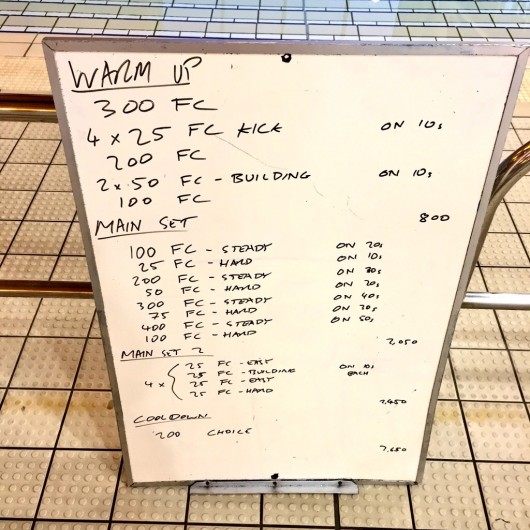 WARM UP
300 FC
4 x 25 FC KICK ON 10s
200 FC
2 x 50 FC - BUILDING ON 10s
100 FC
800
MAIN SET
100 FC - STEADY ON 20s
25 FC - HARD ON 10s
200 FC - STEADY ON 30s
50 FC - HARD ON 20s
300 FC - STEADY ON 40s
75 FC - HARD ON 30s
400 FC - STEADY ON 50s
100 FC - HARD
2,050
MAIN SET 2
25 FC - EASY
4 x 25 FC - BUILDING ON 10s EACH
25 FC - EASY
25 FC - HARD
2,450
COOLDOWN
200 CHOICE
2,650